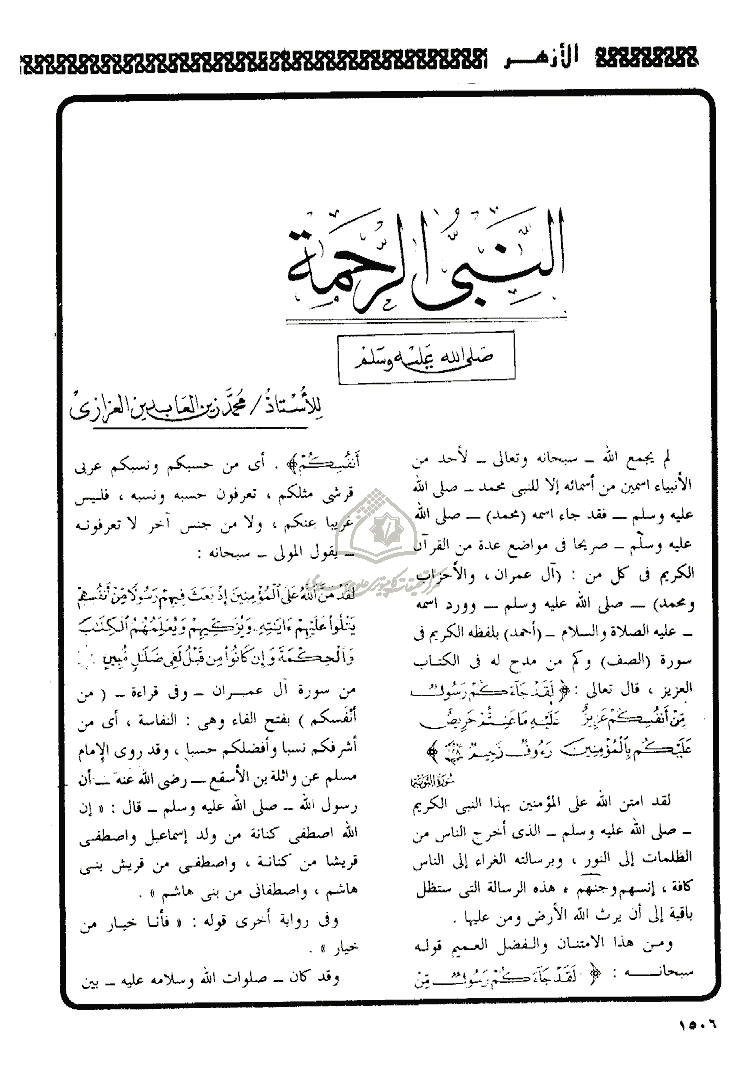 الأزهـــر
النبى الرحمة
صلى الله عليه وسلم
للأستاذ / محمد زين العابدين العزازى
لم يجمع الله ــ سبحانه وتعالى ــ لأحد من
الأنبياء اسمين من أسمائه إلا للنبى محمد ــ صلى الله
عليه وسلم ــ فقد جاء اسمه (محمد) ــ صلى الله
عليه وسلم ــ صريحا فى مواضع عدة من القرآن
الكريم فى كل من : (آل عمران ، والأحزاب
ومحمد) ــ صلى الله عليه وسلم ــ وورد اسمه
ــ عليه الصلاة والسلام ــ (أحمد) بلفظه الكريم فى
سورة (الصف) وكم من مدح له فى الكتاب
العزيز ، قال تعالى : ﴿ لَقَدْ جَاءَكُمْ رَسُولٌ
مِّنْ أَنفُسِكُمْ عَزِيزٌ عَلَيْهِ مَا عَنِتُّمْ حَرِيصٌ
عَلَيْكُم بِالْمُؤْمِنِينَ رَءُوفٌ رَّحِيمٌ ﴾
سورة التوبة
لقد امتن الله على المؤمنين بهذا النبى الكريم
ــ صلى الله عليه وسلم ــ الذى أخرج الناس من
الظلمات إلى النور ، وبرسالته الغراء إلى الناس
كافة ، إنسهم وجنهم ، هذه الرسالة التى ستظل
باقية إلى أن يرث الله الأرض ومن عليها .
ومن هذا الامتنان والفضل العميم قوله
سبحانــه : ﴿ لَقَدْ جَاءَكُمْ رَسُولٌ مِّنْ
أَنفُسِكُمْ ﴾ . أى من حسبكم ونسبكم عربى
قرشى مثلكم ، تعرفون حسبه ونسبه ، فليس
غريبا عنكم ، ولا من جنس آخر لا تعرفونه
ــ يقول المولى ــ سبحانه :
لَقَدْ مَنَّ اللَّهُ عَلَى الْمُؤْمِنِينَ إِذْ بَعَثَ فِيهِمْ رَسُولًا مِّنْ أَنفُسِهِمْ
يَتْلُوا عَلَيْهِمْ ءَايَٰتِهِ وَيُزَكِّيهِمْ وَيُعَلِّمُهُمُ الْكِتَٰبَ
وَالْحِكْمَةَ وَإِن كَانُوا مِن قَبْلُ لَفِى ضَلَٰلٍ مُّبِينٍ
من سورة آل عمــران ــ وفى قراءة ــ ( من
أنْفَسكم ) بفتح الفاء وهى : النفاسة ، أى من
أشرفكم نسبا وأفضلكم حسبا ، وقد روى الإمام
مسلم عن واثلة بن الأسقع ــ رضى الله عنه ــ أن
رسول الله ــ صلى الله عليه وسلم ــ قال : « إن
الله اصطفى كنانة من ولد إسماعيل واصطفى
قريشا من كنانة ، واصطفى من قريش بنى
هاشم ، واصطفانى من بنى هاشم » .
وفى رواية أخرى قوله : « فأنا خيار من
خيار » .
وقد كان ــ صلوات الله وسلامه عليه ــ بين
١٥٠٦